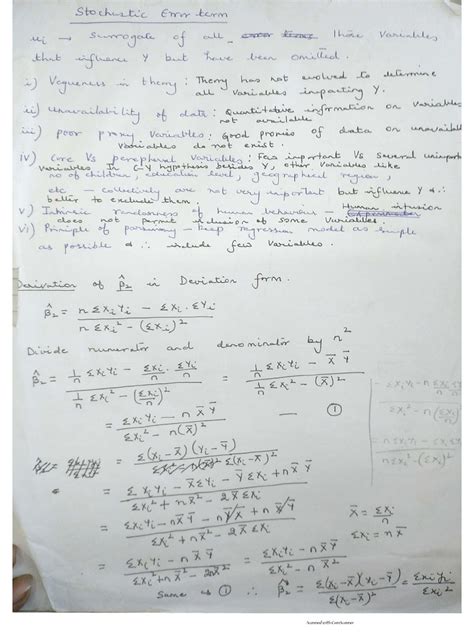 Stochastic Error term
ui → Surrogate of all error terms those variables
that influence Y but have been omitted.
i) Vagueness in theory : Theory has not evolved to determine
all variables impacting Y.
ii) Unavailability of data : Quantitative information on variables
not available
iii) poor proxy variables : Good proxies of data on unavailable
variables do not exist.
iv) Core Vs peripheral variables : Few important Vs several unimportant
variables In C-Y hypothesis besides Y, other variables like
no of children, education level, geographical region,
etc — collectively are not very important but influence Y & ∴
better to exclude them.
v) Intrinsic randomness of human behaviour — Human intusion
does not permit inclusion of some variables.
vi) Principle of parsimony — Keep regression model as simple
as possible & ∴ include few variables.
Derivation of β̂2 in Deviation form.
β̂2 = (n ΣXiYi − ΣXi . ΣYi) / (n ΣXi² − (ΣXi)²)
Divide numerator and denominator by n²
β̂2 = (1/n ΣXiYi − ΣXi/n . ΣYi/n) / (1/n ΣXi² − (ΣXi/n)²) = (1/n ΣXiYi − X̄ Ȳ) / (1/n ΣXi² − (X̄)²)
= (ΣXiYi − n X̄ Ȳ) / (ΣXi² − n(X̄)²) — ①
= Σ(Xi − X̄)(Yi − Ȳ) / Σ(Xi − X̄)²
= (ΣXiYi − X̄ΣYi − ȲΣXi + nX̄Ȳ) / (ΣXi² + nX̄² − 2X̄ΣXi)
= (ΣXiYi − nX̄Ȳ − nX̄Ȳ + nX̄Ȳ) / (ΣXi² + nX̄² − 2X̄ΣXi)
X̄ = ΣXi/n
ΣXi = nX̄
= (ΣXiYi − nX̄Ȳ) / (ΣXi² + nX̄² − 2nX̄²) = (ΣXiYi − nX̄Ȳ) / (ΣXi² − nX̄²)
Same as ① ∴ β̂2 = Σ(Xi − X̄)(Yi − Ȳ) / Σ(Xi − X̄)² = Σxiyi / Σxi²
Scanned with CamScanner